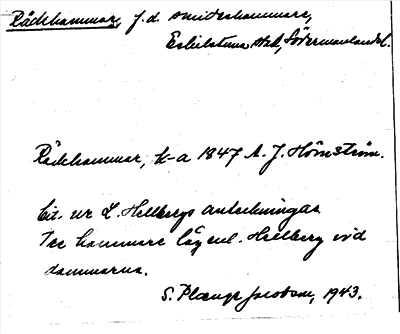 Räckhammar, f.d. smideshammare,
Eskilstuna stad, Södermanland.
Räckhammar, k-a 1847 A. J. Hörnström.
Cit. ur L. Hellbergs anteckningar
Tre hammare låg enl. Hellberg vid
dammarna.
S. Plænge Jacobson, 1943.